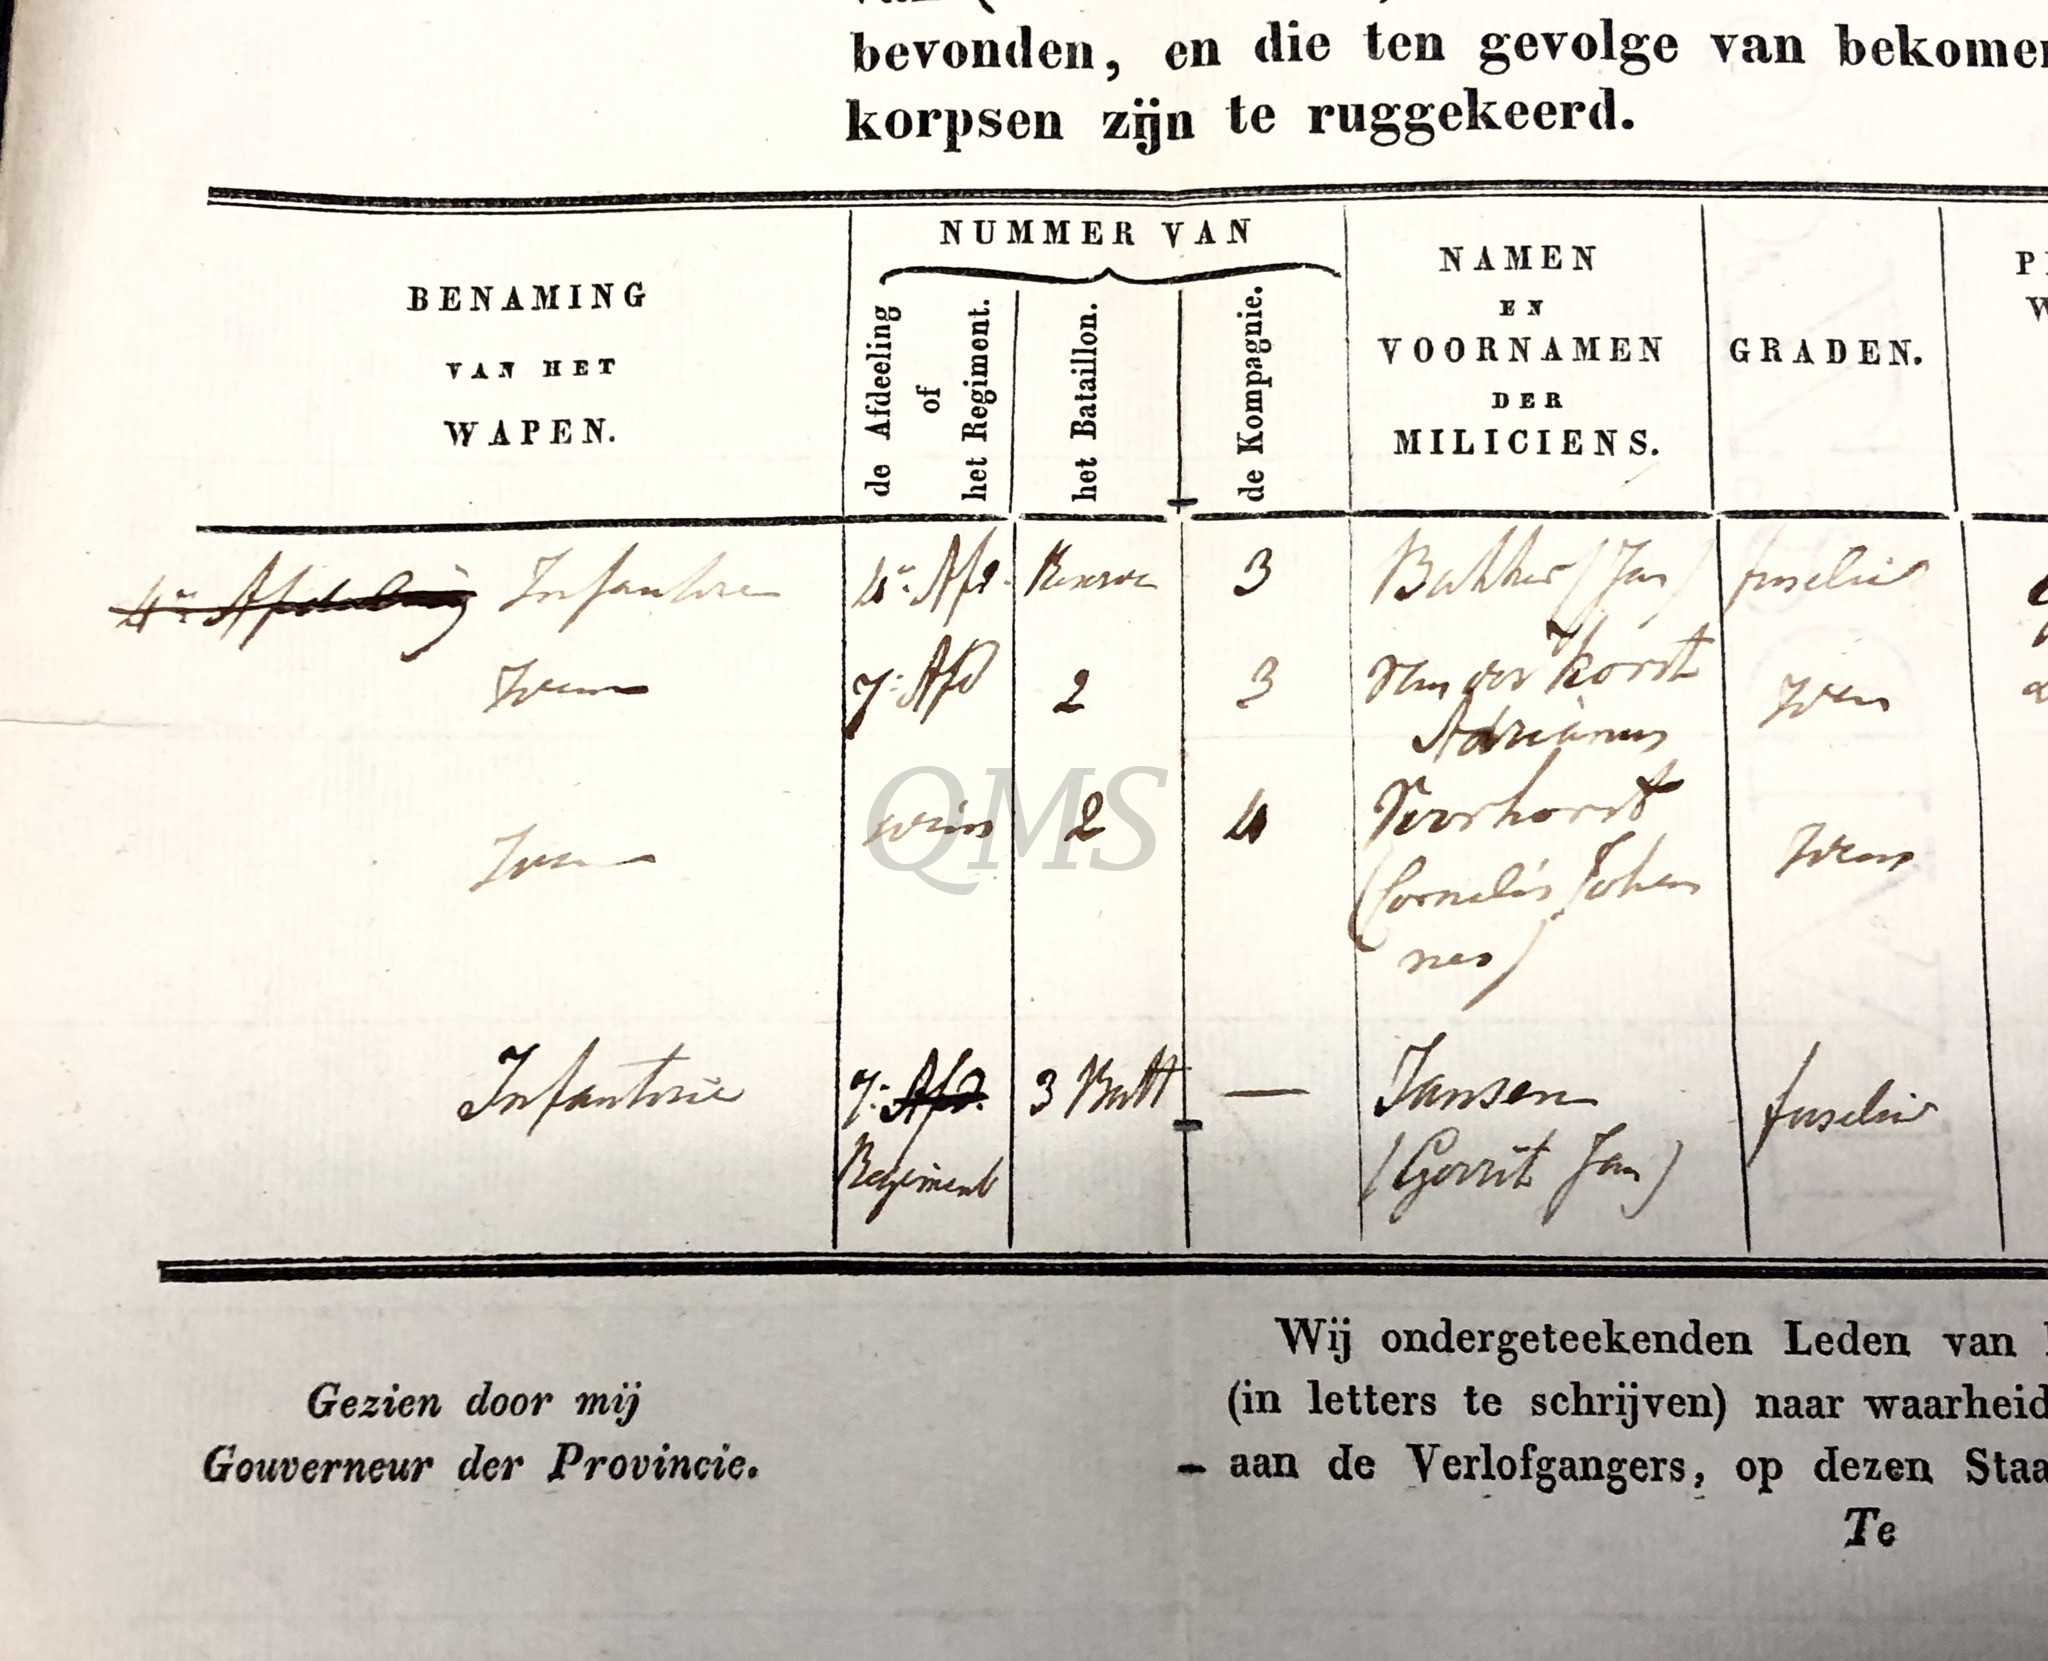 bevonden, en die ten gevolge van bekomen
korpsen zijn te ruggekeerd.
BENAMING
VAN HET
WAPEN.
NUMMER VAN
de Afdeeling
of
het Regiment.
het Bataillon.
de Kompagnie.
NAMEN
EN
VOORNAMEN
DER
MILICIENS.
GRADEN.
4e Afdeling Infanterie 4e Afd. Reserve 3 Bakker (Jan) fuselier
Idem 7e Afd 2 3 Van der Horst Idem
Adrianus
Idem idem 2 4 Voorhorst Idem
(Cornelis Johan
nes)
Infanterie 7e Afd. 3 Batt — Jansen fuselier
Regiment (Gerrit Jan)
QMS
Gezien door mij
Gouverneur der Provincie.
Wij ondergeteekenden Leden van
(in letters te schrijven) naar waarheid
aan de Verlofgangers, op dezen Staa
Te